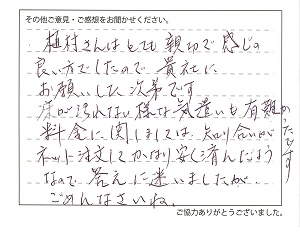 その他ご意見・ご感想をお聞かせください。
植村さんはとても親切で感じの
良い方でしたので貴社に
お願いした次第です
床が汚れない様な気遣いも有難かったですヨ
料金に関しましては、知り合いが
ネット注文してかなり安く済んだよう
なので答えに迷いましたが、
ごめんなさいね。
ご協力ありがとうございました。